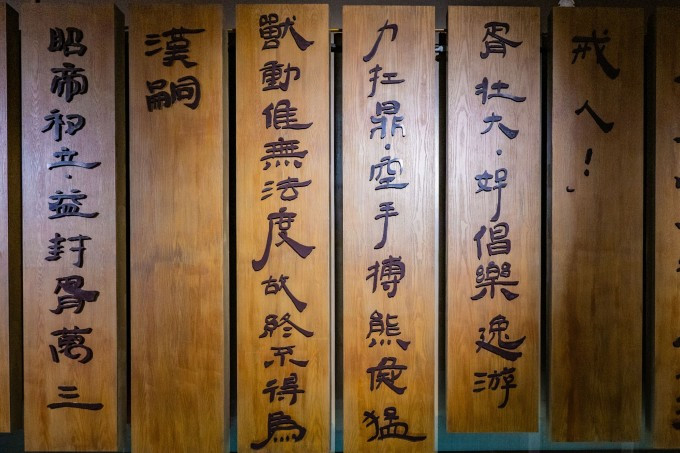 戒人！」
胥壯大，好倡樂逸游
力扛鼎，空手搏熊彘猛
獸動作無法度故終不得為
漢嗣
昭帝初立，益封胥萬三